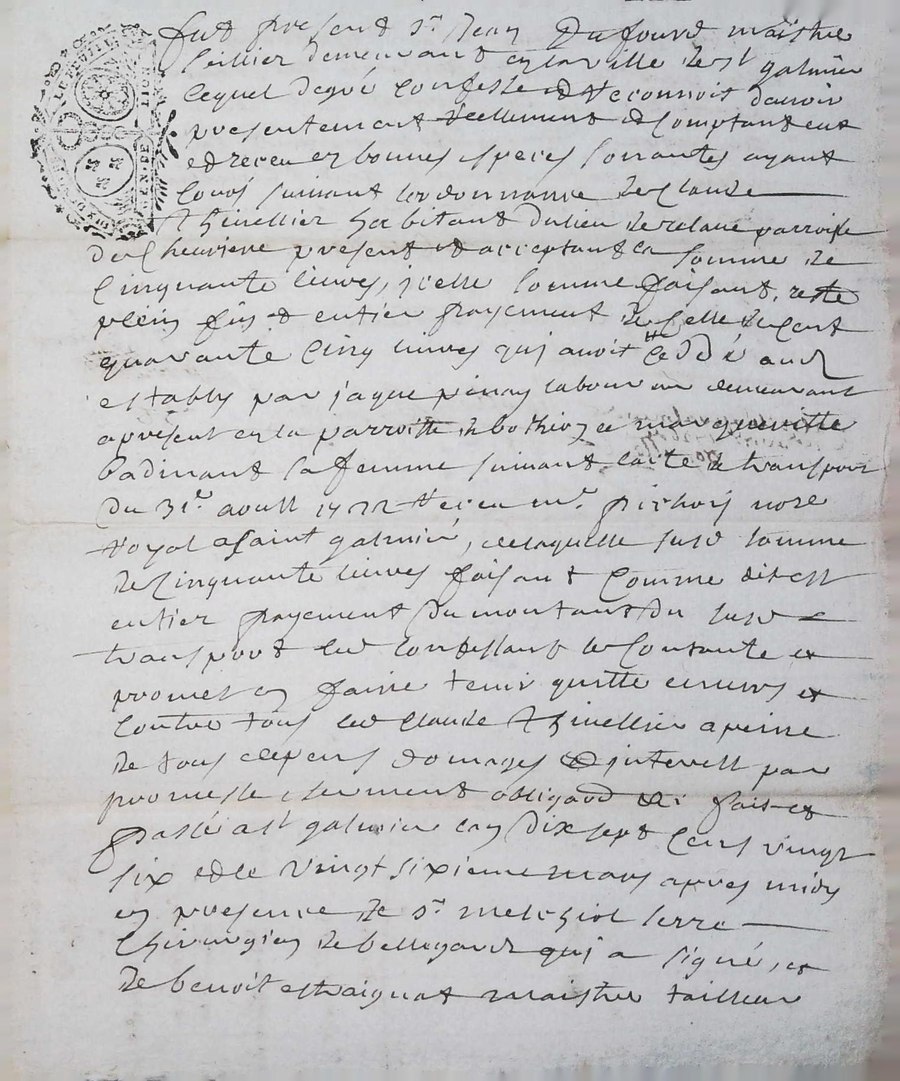 fut present Sr Jean Dufourd maistre
sellier demeurant en la ville de St galmier
lequel de gré confesse et reconnoit davoir
presentement reellement et comptant eut
et receu en bonnes especes sonnantes ayant
cours suivant lordonnance de Claude
Thivellier habitant du lieu de parroisse
de Chevriere present et acceptant la somme de
Cinquante livres, jcelle somme faisant reste
plein fin et entier payement de celle de cent
quarante cinq livres qui avoit Ceddé aud
estably par jaque pinay laboureur demeurant
apresent en la parroisse de et margueritte
badinant sa femme suivant lacte de transport
du 31e aoust 1722 receu me pichois nore
Royal a saint galmier, de laquelle susd somme
de Cinquante livres faisant Comme dit est
entier payement du montant du susd
transport led Confessant se Contante et
promet en faire tenir quitte envers et
contre tous led Claude Thivellier a peine
de tous depens domages et interest par
promesse serment obligaon &c fait et
passé a St galmier Lan Dix sept Cens vingt
six et le vingt sixieme mars apres midy
en presence de Sr melchiol serre
Chirurgien de bellegarde qui a signé, et
de benoit estraignat maistre tailleur